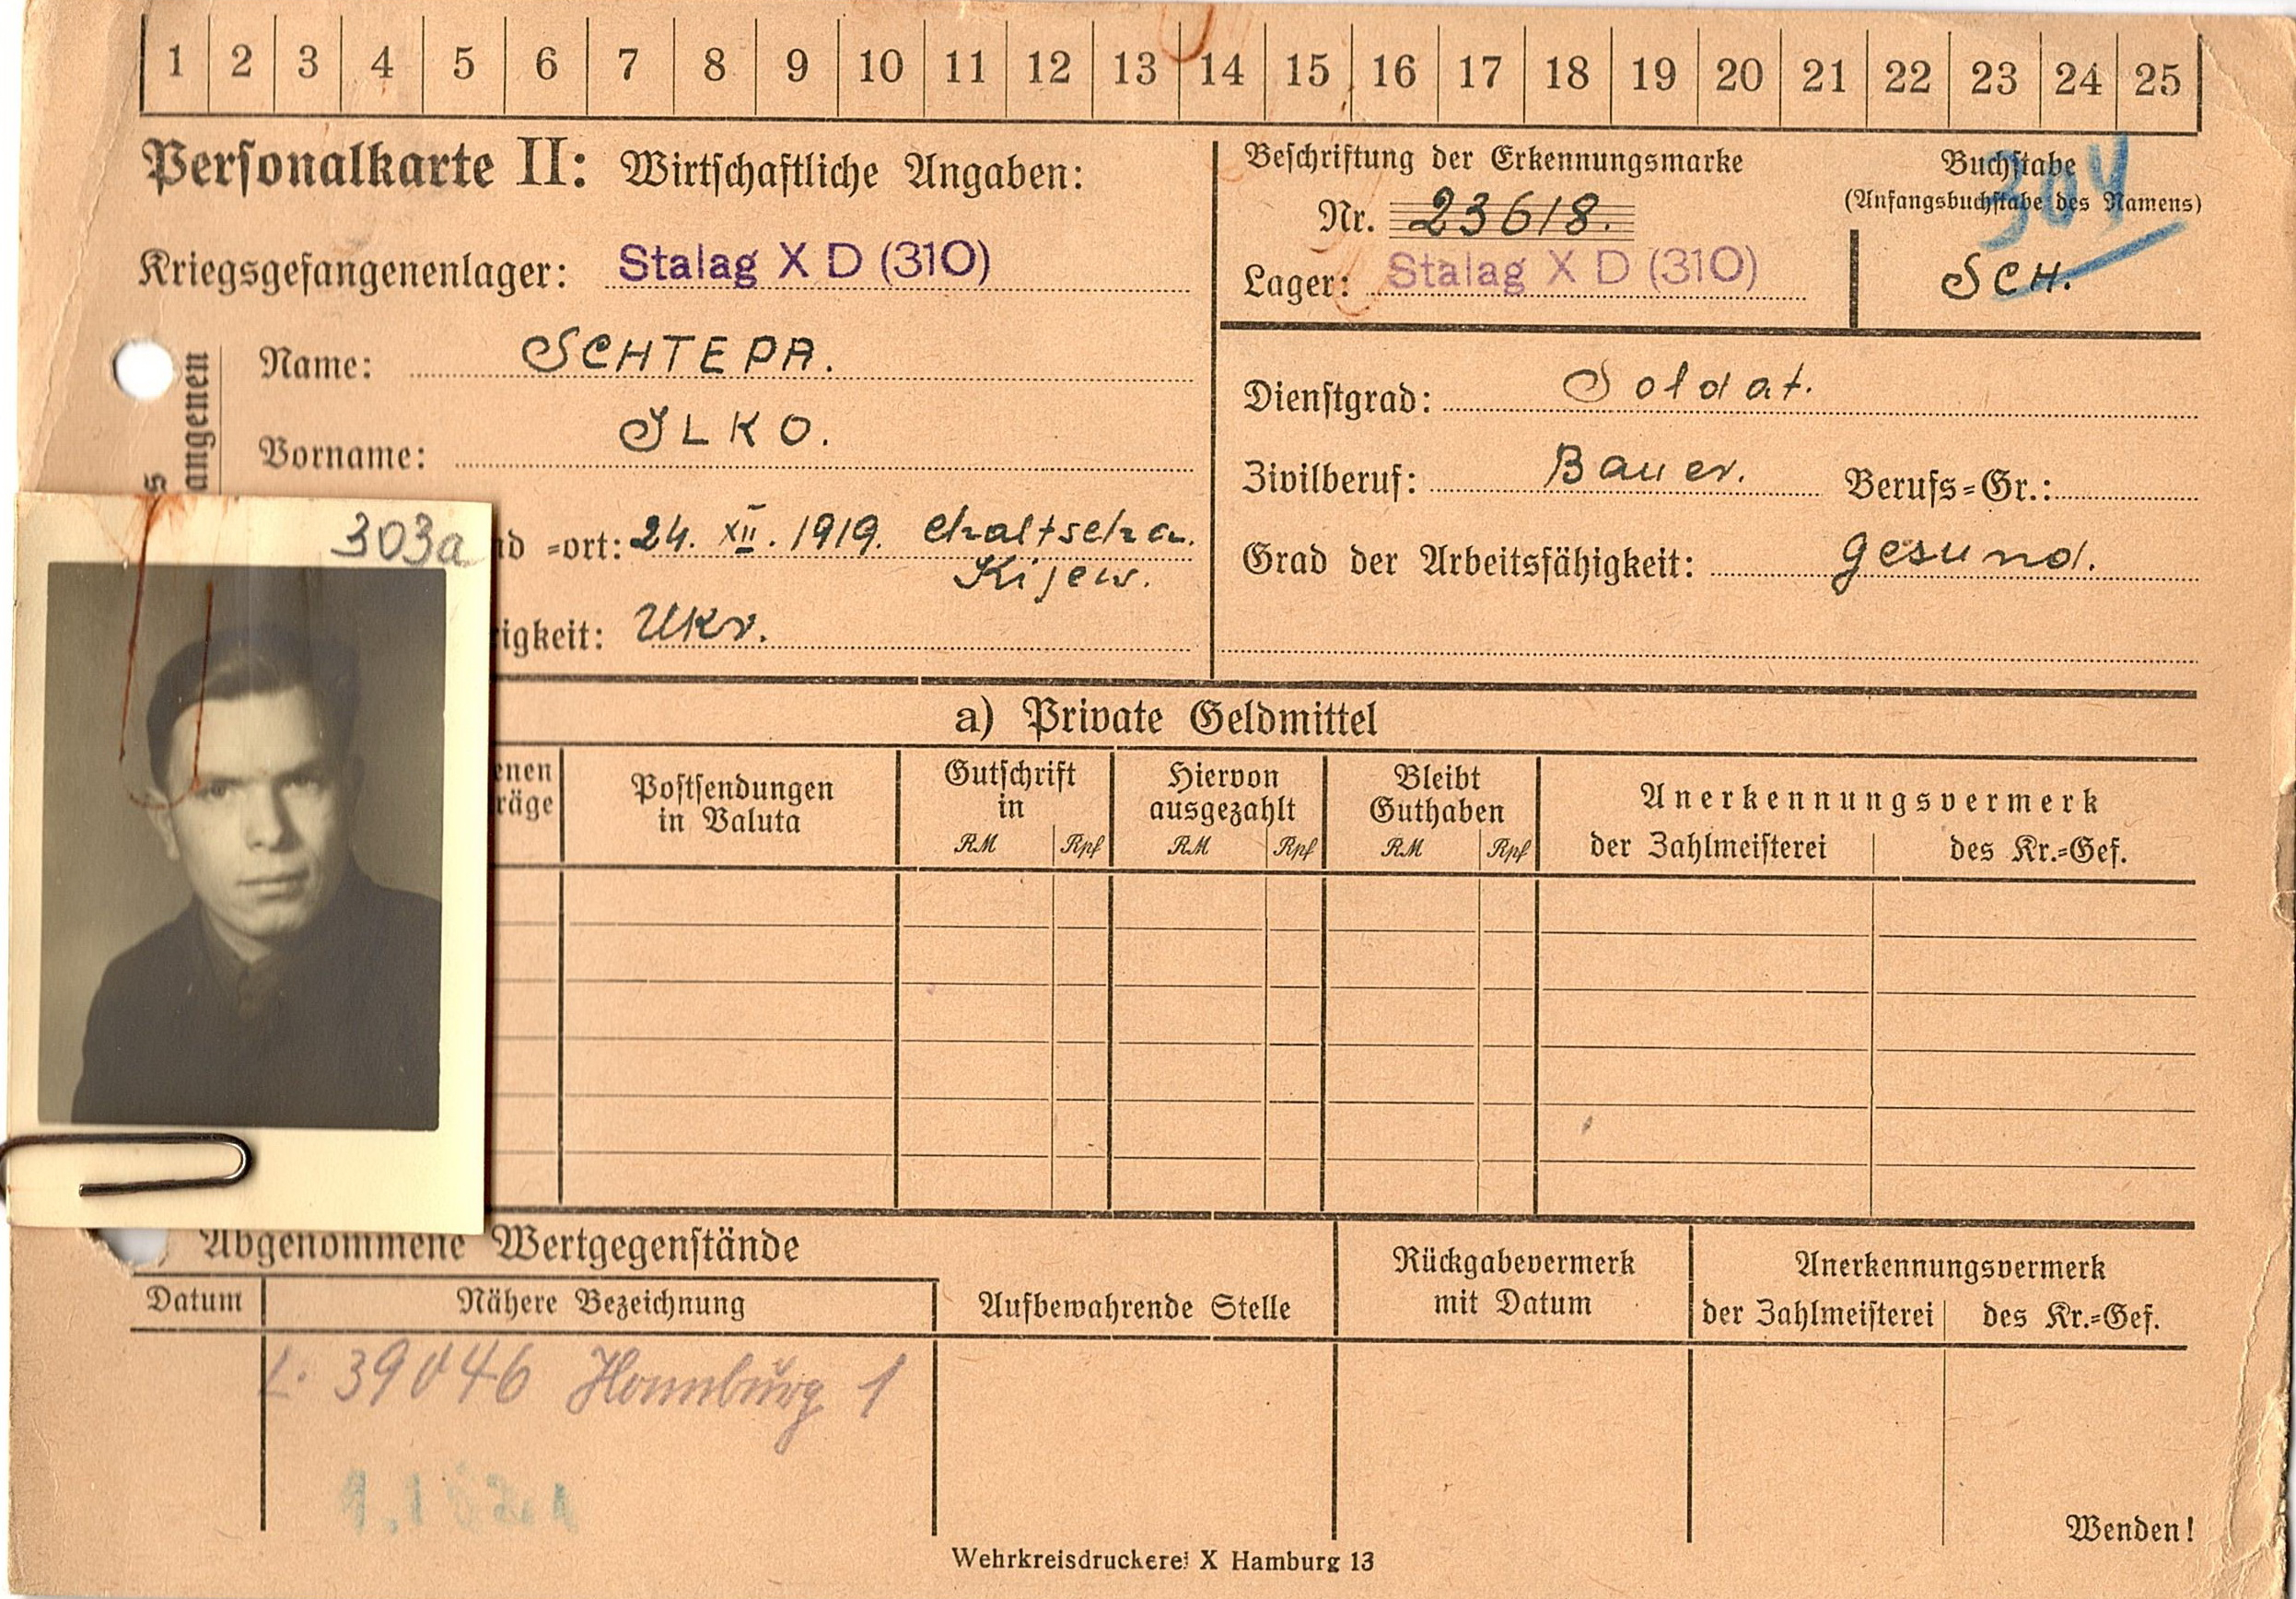 1 2 3 4 5 6 7 8 9 10 11 12 13 14 15 16 17 18 19 20 21 22 23 24 25
Personalkarte II: Wirtschaftliche Angaben:
Kriegsgefangenenlager: Stalag X D (310)
Beschriftung der Erkennungsmarke
Nr. 23618.
Lager: Stalag X D (310)
Buchstabe
(Anfangsbuchstabe des Namens)
304
SCH.
angenen
s
Name: SCHTEPA.
Vorname: ILKO.
nd =ort: 24. XII. 1919. Chaltscha.
Kijew.
igkeit: Ukr.
Dienstgrad: Soldat.
Zivilberuf: Bauer. Berufs=Gr.:
Grad der Arbeitsfähigkeit: gesund.
303a
a) Private Geldmittel
enen
räge
Postsendungen
in Valuta
Gutschrift
in
RM Rpf
Hiervon
ausgezahlt
RM Rpf
Bleibt
Guthaben
RM Rpf
Anerkennungsvermerk
der Zahlmeisterei des Kr.=Gef.
) Abgenommene Wertgegenstände
Datum Nähere Bezeichnung
Aufbewahrende Stelle
Rückgabevermerk
mit Datum
Anerkennungsvermerk
der Zahlmeisterei des Kr.=Gef.
39046 Homburg 1
Wenden!
Wehrkreisdruckerei X Hamburg 13